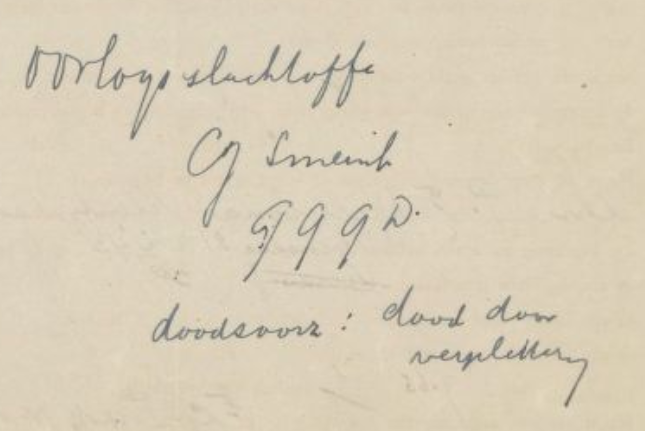 oorlogsslachtoffe
CJ Smeink
GGGD.
doodsoorz: dood door
verplettering